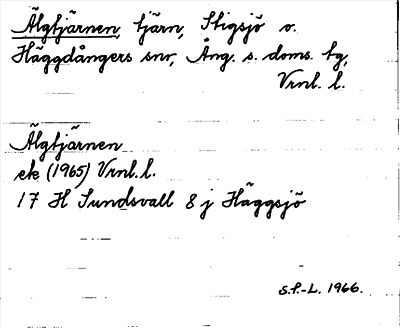 Älgtjärnen, tjärn, Stigsjö o.
Häggdångers snr, Ång. s. doms. tg,
Vrnl. l.
Älgtjärnen
ek (1965) Vrnl. l.
17 H Sundsvall 8 j Häggsjö
S.P.-L. 1966.